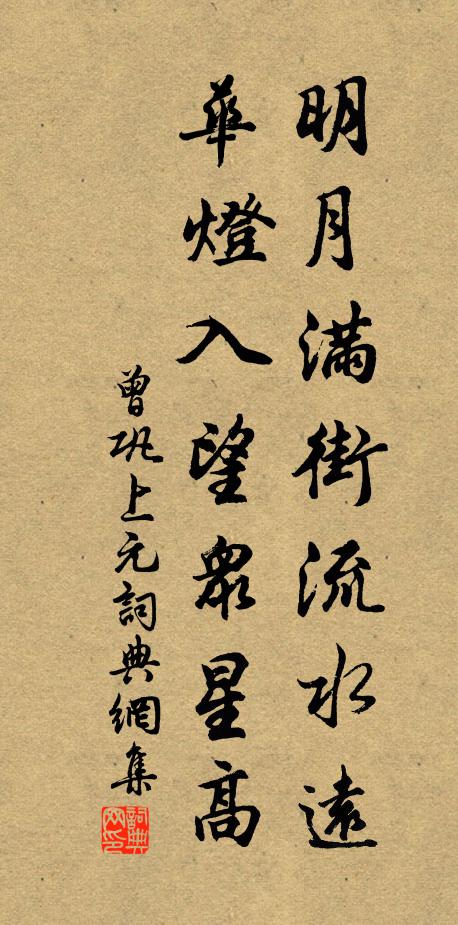 明月滿街流水遠
華燈入望衆星高
曾巩上元詞典網集
詞典网印